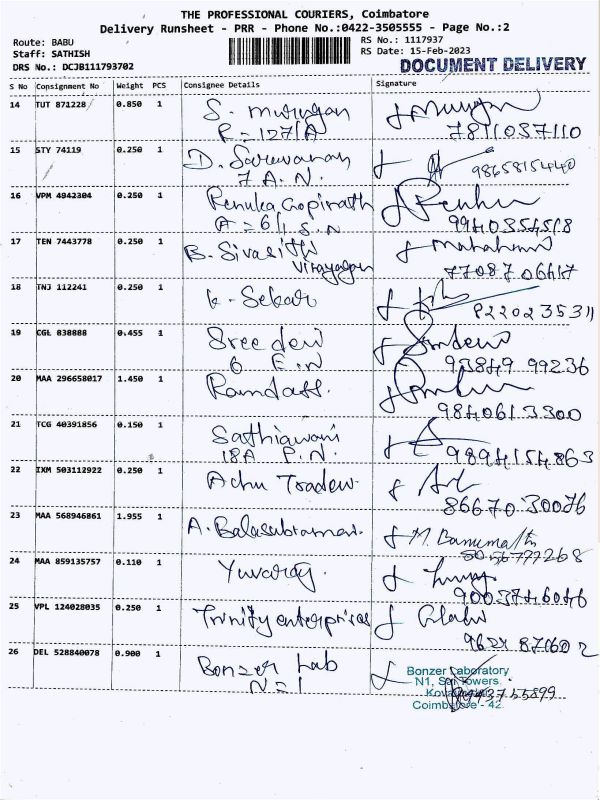 THE PROFESSIONAL COURIERS, Coimbatore
Delivery Runsheet - PRR - Phone No.:0422-3505555 - Page No.:2
Route: BABU
Staff: SATHISH
DRS No.: DCJB111793702
RS No.: 1117937
RS Date: 15-Feb-2023
DOCUMENT DELIVERY
S No Consignment No Weight PCS Consignee Details Signature
14 TUT 871228 0.850 1 S. Murugan
R = 127/A 7811037110
15 STY 74119 0.250 1 D. Saravanan
7 A. N. 9865815440
16 VPM 4942304 0.250 1 Renuka Gopinath
A = 6/1 S. N 9940354518
17 TEN 7443778 0.250 1 B. Sivasithi
Vinayagan 7708706617
18 TNJ 112241 0.250 1 K. Sekar
8220235311
19 CGL 838888 0.455 1 Sree devi
6 E. N 93849 99236
20 MAA 296658017 1.450 1 Ramdass.
9840613300
21 TCG 40391856 0.150 1 Sathiawani
18A P. N. 9894154863
22 IXM 503112922 0.250 1 Achu Traders
86670 30076
23 MAA 568946861 1.955 1 A. Balasubramani. M. Banumathi
24 MAA 859135757 0.110 1 Yuvaraj.
9003746046
25 VPL 124028035 0.250 1 Trinity enterprises
26 DEL 528840078 0.900 1 Bonzer Lab
N = 1
Bonzer Laboratory
N1, Sri Towers.
Coimbatore - 42.
9943755899